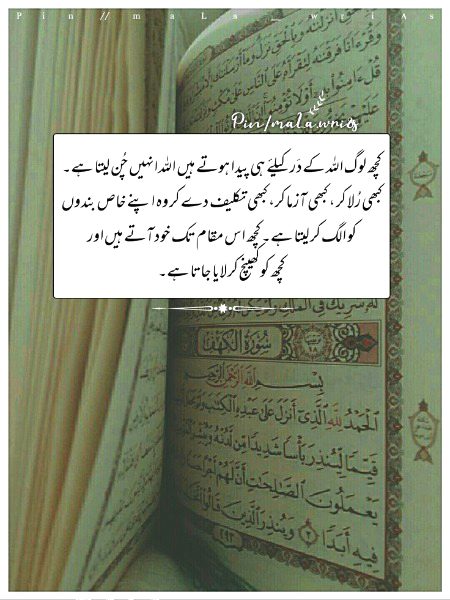 Pin//maLa_wriAs
وَقُرْءَانًا فَرَقْنَٰهُ لِتَقْرَأَهُۥ عَلَى ٱلنَّاسِ عَلَىٰ مُكْثٍ
Pin/maLa.wriAs
کچھ لوگ اللہ کے دَر کیلئے ہی پیدا ہوتے ہیں اللہ انہیں چُن لیتا ہے۔
کبھی رُلا کر، کبھی آزما کر، کبھی تکلیف دے کر وہ اپنے خاص بندوں
کو الگ کر لیتا ہے۔ کچھ اس مقام تک خود آتے ہیں اور
کچھ کو کھینچ کر لایا جاتا ہے۔
سُورَةُ الكَهْفِ
بِسْمِ ٱللَّهِ ٱلرَّحْمَٰنِ ٱلرَّحِيمِ
ٱلْحَمْدُ لِلَّهِ ٱلَّذِىٓ أَنزَلَ عَلَىٰ عَبْدِهِ ٱلْكِتَٰبَ وَلَمْ
قَيِّمًا لِّيُنذِرَ بَأْسًا شَدِيدًا مِّن لَّدُنْهُ
يَعْمَلُونَ ٱلصَّٰلِحَٰتِ أَنَّ لَهُمْ أَجْرًا
فِيهِ أَبَدًا ٣ وَيُنذِرَ ٱلَّذِينَ قَالُوا۟
٢٩٣